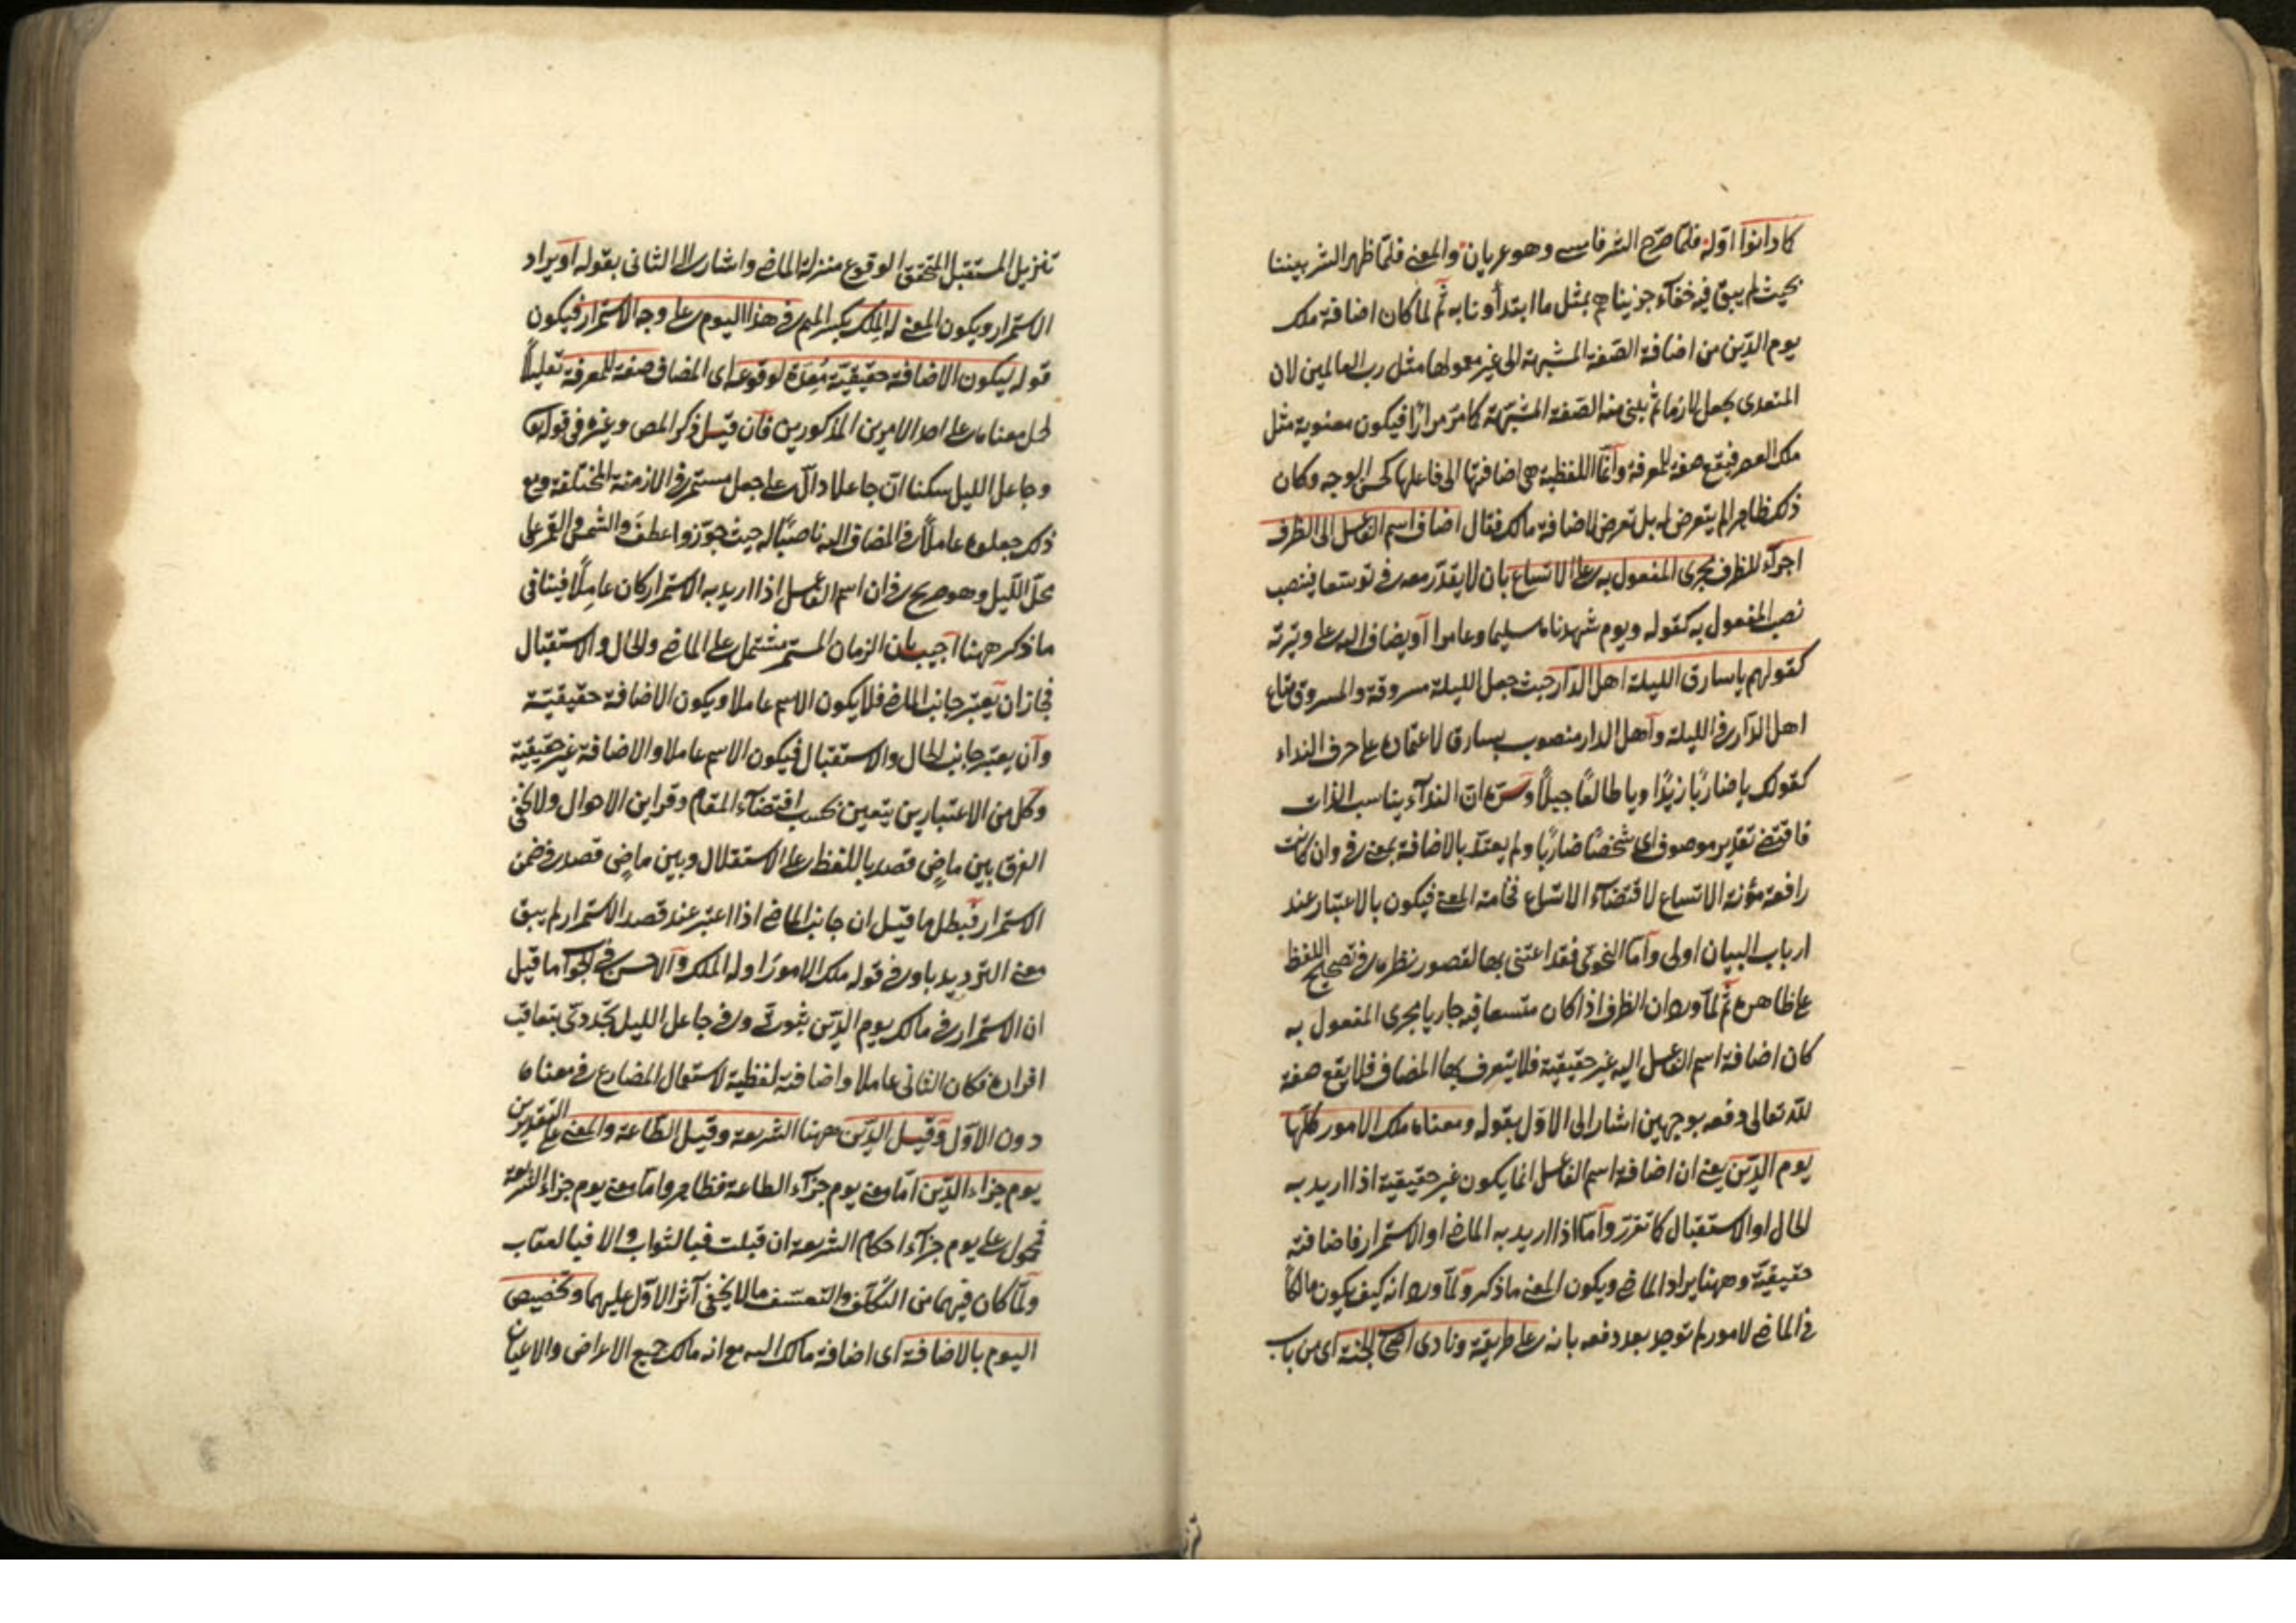 كما دانوا اوّله فلمّا صرّح الشر فامسى وهو عريان والمعنى فلمّا ظهر الشر بيننا
بحيث لم يبق فيه خفآء جزيناهم بمثل ما ابتدأونا به ثم لما كان اضافة ملك
يوم الدّين من اضافة الصّفة المشبهة الى غير معمولها مثل رب العالمين لان
المتعدى يجعل لازما ثم يبنى منه الصّفة المشبّهة كما مرّ مرارًا فيكون معنوية مثل
ملك العصر فيقع صفة للمعرفة وانّما اللفظية هى اضافتها الى فاعلها كحسن الوجه وكان
ذلك ظاهرا لم يتعرض له بل تعرض لاضافة مالك فقال اضاف اسم الفاعل الى الظرف
اجرآء للظرف مجرى المفعول به على الاتساع بان لا يقدّر معه فى توسّعا فينصب
نصب المفعول به كقوله ويوم شهدناه سليما وعامرا او يضاف اليه على وتيرته
كقولهم يا سارق الليلة اهل الدّار حيث جعل الليلة مسروقة والمسروق متاع
اهل الدّار فى الليلة وآهل الدار منصوب بسارق لاعتماده على حرف النداء
كقولك يا ضاربًا زيدًا ويا طالعًا جبلًا وسرّه انّ الندآء يناسب الذات
فاقتضى تقدير موصوف اى شخصًا ضاربًا ولم يعتدّ بالاضافة بمعنى فى وان كانت
رافعة مؤنة الاتساع لاقتضآء الاتساع فخامة المعنى فيكون بالاعتبار عند
ارباب البيان اولى وآما النحوىّ فقد اعتنى بها لقصور نظره فى تصحيح اللفظ
على ظاهره ثمّ لمّا ورد ان الظرف اذا كان متّسعا فيه جاريا مجرى المفعول به
كان اضافة اسم الفاعل اليه غير حقيقية فلا يتعرف بها المضاف فلا يقع صفة
لله تعالى دفعه بوجهين اشار الى الاوّل بقوله ومعناه ملك الامور كلّها
يوم الدّين يعنى ان اضافة اسم الفاعل انما يكون غير حقيقية اذا اريد به
الحال او الاستقبال كما تقرّر وآمّا اذا اريد به الماضى او الاستمرار فاضافته
حقيقيّة وههنا يراد الماضى ويكون المعنى ما ذكر ولمّا ورد انه كيف يكون مالكًا
فى الماضى لامور لم توجد بعد دفعه بانه على طريقة ونادى اصحاب الجنة اى من باب
تنزيل المستقبل المتحقق الوقوع منزلة الماضى واشار الى الثانى بقوله او يراد
الاستمرار ويكون المعنى له الملك بكسر الميم فى هذا اليوم على وجه الاستمرار فيكون
قوله ليكون الاضافة حقيقيّة مُعِدّة لوقوعه اى المضاف صفة للمعرفة تعليلًا
لحمل معناه على احد الامرين المذكورين فآن قيل ذكر المص وغيره فى قوله تعا
وجاعل الليل سكنا انّ جاعلا دالّ على جعل مستمر فى الازمنة المختلفة ومع
ذلك جعلوه عاملًا فى المضاف اليه ناصبًا له حيث جوّزوا عطف والشمس والقمر على
محلّ اللّيل وهو صريح فى ان اسم الفاعل اذا اريد به الاستمرار كان عاملًا فينافى
ما ذكر ههنا آجيب بان الزمان المستمر مشتمل على الماضى والحال والاستقبال
فجاز ان يعتبر جانب الماضى فلا يكون الاسم عاملا ويكون الاضافة حقيقيّة
وآن يعتبر جانب الحال والاستقبال فيكون الاسم عاملا والاضافة غير حقيقية
وكل من الاعتبارين يتعين بحسب اقتضآء المقام وقراين الاحوال ولا يخفى
الفرق بين ماضى قصد باللفظ على الاستقلال وبين ماضى قصد فى ضمن
الاستمرار فبطل ما قيل ان جانب الماضى اذا اعتبر عند قصد الاستمرار لم يبق
معنى الترديد باو فى قوله ملك الامور او له الملك وآلاحسن فى الجواب ما قيل
ان الاستمرار فى مالك يوم الدّين ثبوتىّ وفى جاعل الليل تجدّدىّ بتعاقب
افراده فكان الثانى عاملا واضافته لفظية لاستعمال المضارع فى معناه
دون الاوّل وقيل الدّين ههنا الشريعة وقيل الطّاعة والمعنى على التقديرين
يوم جزاء الدّين امّا معنى يوم جزآء الطاعة فظاهر وامّا معنى يوم جزاء الشريعة
فمحمول على يوم جزآء احكام الشريعة ان قبلت فبالثواب والا فبالعقاب
ولمّا كان فيهما من التكلّف والتعسّف ما لا يخفى آثر الاوّل عليهما وتخصيص
اليوم بالاضافة اى اضافة مالك اليه مع انه مالك جميع الاعراض والاعيان